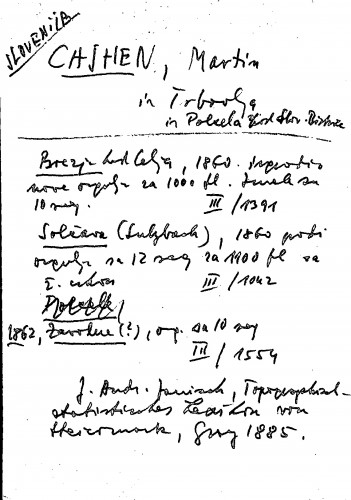 SLOVENIJA
CASHEN, Martin
in Trbovlja
in Polzela
Brezje kod Celja, 1860. isporučio
nove orgulje za 1000 fl. Imale su
10 reg. III/1391
Solčava (Sulzbach), 1860 gradi
orgulje sa 12 reg za 1100 fl za
ž. crkvu III/1042
1862, Zavodne (?), org. sa 10 reg
III/1554
J. Andr. Janisch, Topographisch-
statistisches Lexikon von
Steiermark, Graz 1885.